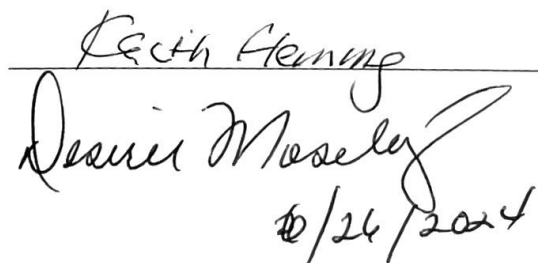 Keith Fleming
Desirie Mosely
10/26/2024